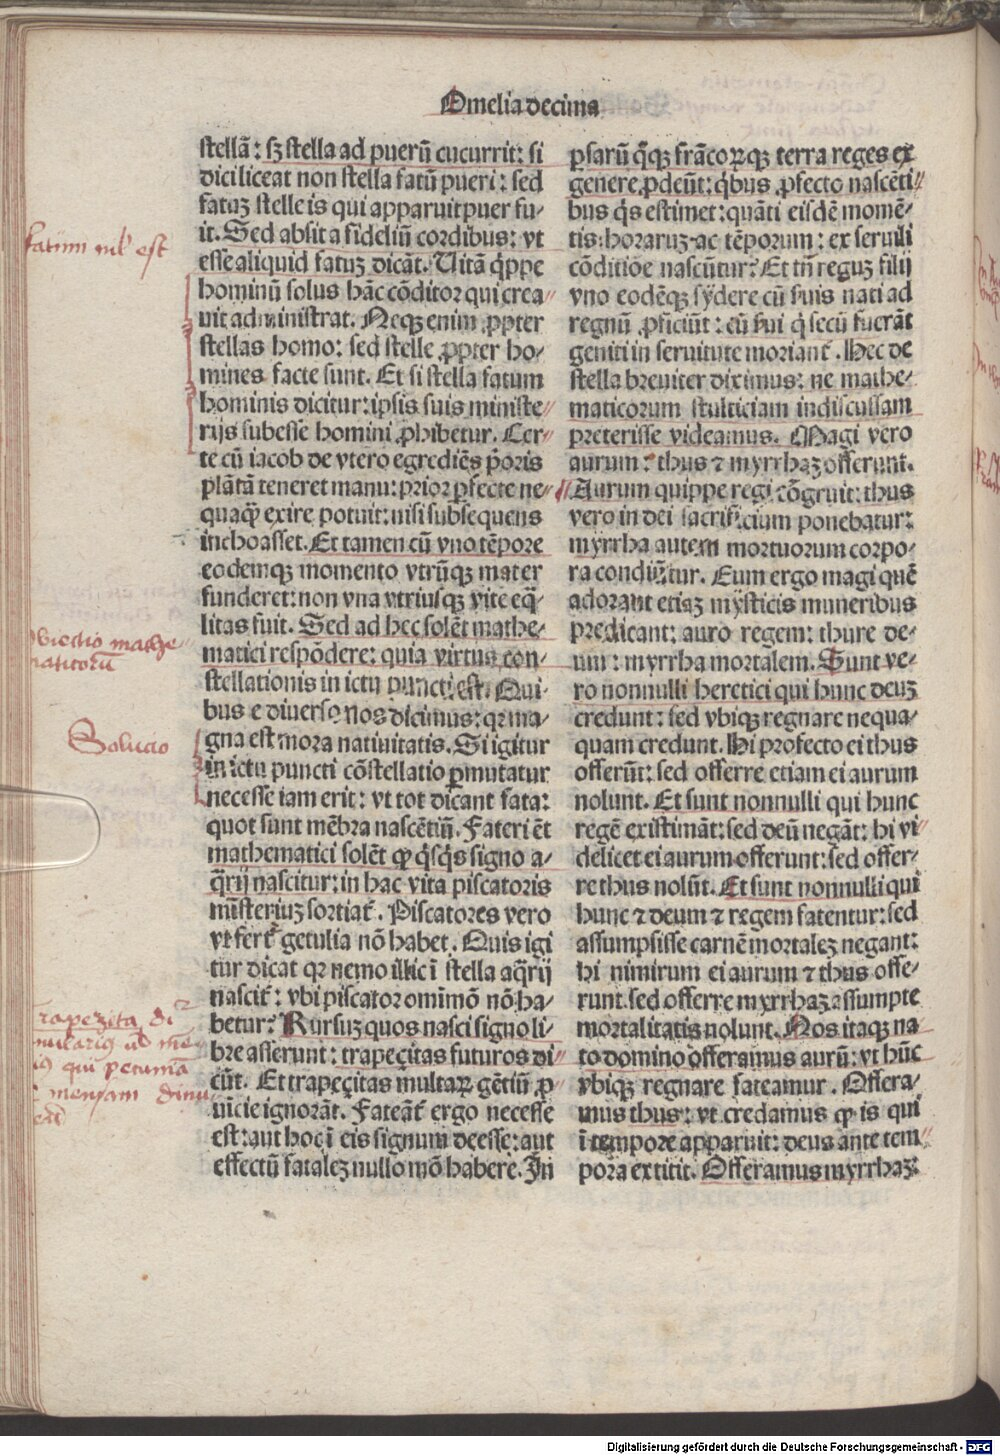 Omelia decima
stellã: sꝫ stella ad puerũ cucurrit: si
dici liceat non stella fatũ pueri: sed
fatuꝫ stelle is qui apparuit puer fu-
it. Sed absit a fideliũ cordibus: vt
esse aliquid fatuꝫ dicãt. Uitã q̃ppe
hominũ solus hãc cõditor qui crea-
uit administrat. Neqꝫ enim ꝓpter
stellas homo: sed stelle ꝓpter ho-
mines facte sunt. Et si stella fatum
hominis dicitur: ipsis suis ministe-
rijs subesse homini ꝓhibetur. Cer-
te cũ iacob de vtero egrediẽs p̃oris
plãtã teneret manu: prior ꝑfecte ne-
quaq̃ꝫ exire potuit: nisi subsequens
inchoasset. Et tamen cũ vno tẽpore
eodemqꝫ momento vtrũqꝫ mater
funderet: non vna vtriusqꝫ vite eq̃-
litas fuit. Sed ad hec solẽt mathe-
matici respõdere: quia virtus con-
stellationis in ictu puncti est. Qui-
bus e diuerso nos dicimus: qꝛ ma-
gna est mora natiuitatis. Si igitur
in ictu puncti cõstellatio ꝑmutatur
necesse iam erit: vt tot dicant fata:
quot sunt mẽbra nascẽtiũ. Fateri ẽt
mathematici solẽt ꝙ q̃sq̃s signo a-
q̃rij nascitur: in hac vita piscatoris
mĩsteriuꝫ sortiat᷑. Piscatores vero
vt fert᷑ getulia nõ habet. Quis igi
tur dicat qꝛ nemo illic ĩ stella aq̃rij
nascit᷑: vbi piscator omĩmõ nõ ha-
betur? Rursuꝫ quos nasci signo li-
bre asserunt: trapeçitas futuros di-
cũt. Et trapeçitas multaꝝ gẽtiũ ꝓ-
uĩcie ignorãt. Fateãt᷑ ergo necesse
est: aut hoc ĩ eis signum deesse: aut
effectũ fataleꝫ nullo mõ habere. In
ꝑsarũ q̃qꝫ frãcoꝝqꝫ terra reges ex
genere ꝓdeũt: q̃bus ꝓfecto nascẽti-
bus q̃s estimet: quãti eisdẽ momẽ-
tis: horaruꝫ ac tẽporum: ex seruili
cõditiõe nascũtur? Et tñ reguꝫ filij
vno eodẽqꝫ sydere cũ suis nati ad
regnũ ꝓficiũt: cũ sui q̃ secũ fuerãt
geniti in seruitute moriant᷑. Hec de
stella breuiter diximus: ne mathe-
maticorum stulticiam indiscussam
preterisse videamus. Magi vero
aurum: thus ⁊ myrrhaꝫ offerunt.
Aurum quippe regi cõgruit: thus
vero in dei sacrificium ponebatur:
myrrha autem mortuorum corpo-
ra condiũtur. Eum ergo magi quẽ
adorant etiaꝫ mysticis muneribus
predicant: auro regem: thure de-
um: myrrha mortalem. Sunt ve-
ro nonnulli heretici qui hunc deuꝫ
credunt: sed vbiqꝫ regnare nequa-
quam credunt. Hi profecto ei thus
offerũt: sed offerre etiam ei aurum
nolunt. Et sunt nonnulli qui hunc
regẽ existimãt: sed deũ negãt: hi vi-
delicet ei aurum offerunt: sed offer-
re thus nolũt. Et sunt nonnulli qui
hunc ⁊ deum ⁊ regem fatentur: sed
assumpsisse carnẽ mortaleꝫ negant:
hi nimirum ei aurum ⁊ thus offe-
runt. sed offerre myrrhaꝫ assumpte
mortalitatis nolunt. Nos itaqꝫ na-
to domino offeramus aurũ: vt hũc
vbiqꝫ regnare fateamur. Offera-
mus thus: vt credamus ꝙ is qui
ĩ tempore apparuit: deus ante tem-
pora extitit. Offeramus myrrhaꝫ:
fatum nil est
Obiectio mathe
maticorũ
Solucio
Trapezita
qui pecuniã
mensam
Digitalisierung gefördert durch die Deutsche Forschungsgemeinschaft - DFG